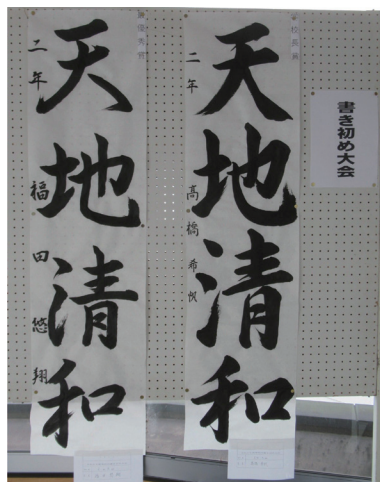 書き初め大会
天地清和
二年 高橋希帆
最優秀賞
天地清和
二年 福田悠翔